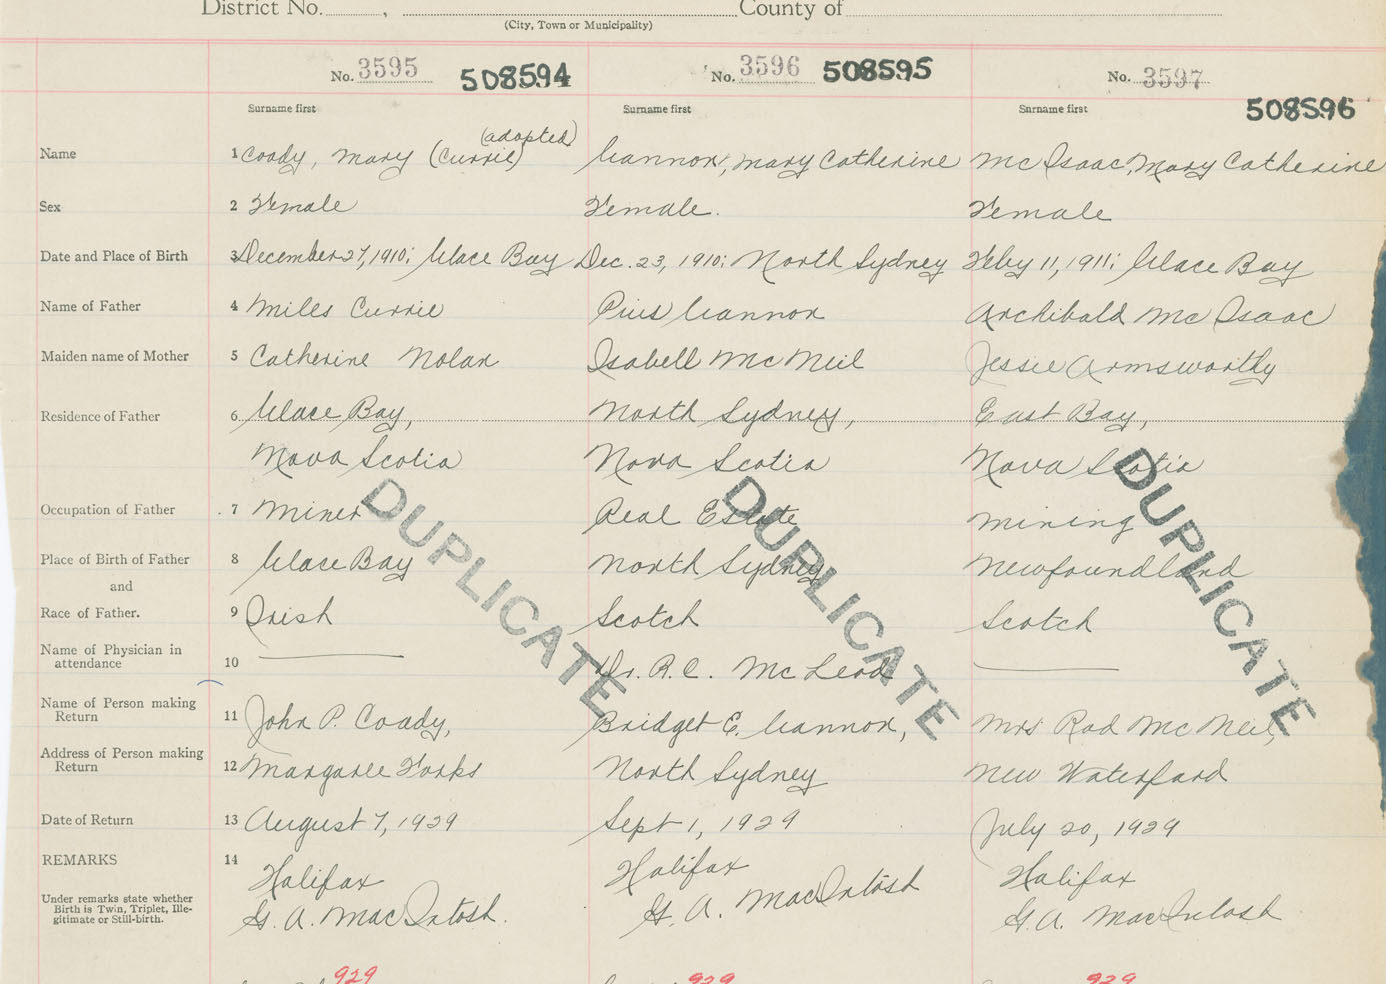 District No. , County of
(City, Town or Municipality)
No. 3595 508594 No. 3596 508595 No. 3597 508596
Surname first Surname first Surname first
(adopted)
Name 1 Coady, Mary (Currie) Cannon, Mary Catherine Mc Isaac, Mary Catherine
Sex 2 Female Female. Female
Date and Place of Birth 3 December 27, 1910; Glace Bay Dec. 23, 1910; North Sydney Feby 11, 1911; Glace Bay
Name of Father 4 Miles Currie Pius Cannon Archibald Mc Isaac
Maiden name of Mother 5 Catherine Nolan Isabell Mc Neil Jessie Armsworthy
Residence of Father 6 Glace Bay, North Sydney, East Bay,
Nova Scotia Nova Scotia Nova Scotia
Occupation of Father 7 Miner Real Estate Mining
Place of Birth of Father 8 Glace Bay North Sydney Newfoundland
and
Race of Father. 9 Irish Scotch Scotch
Name of Physician in
attendance 10 Dr. R.C. McLeod
Name of Person making
Return 11 John P. Coady, Bridget E. Cannon, Mrs Rod Mc Neil,
Address of Person making
Return 12 Margaree Forks North Sydney New Waterford
Date of Return 13 August 7, 1929 Sept 1, 1929 July 20, 1929
REMARKS 14 Halifax Halifax Halifax
Under remarks state whether
Birth is Twin, Triplet, Ille-
gitimate or Still-birth.
G. A. MacIntosh. G. A. MacIntosh G. A. MacIntosh
DUPLICATE DUPLICATE DUPLICATE
929 929 929